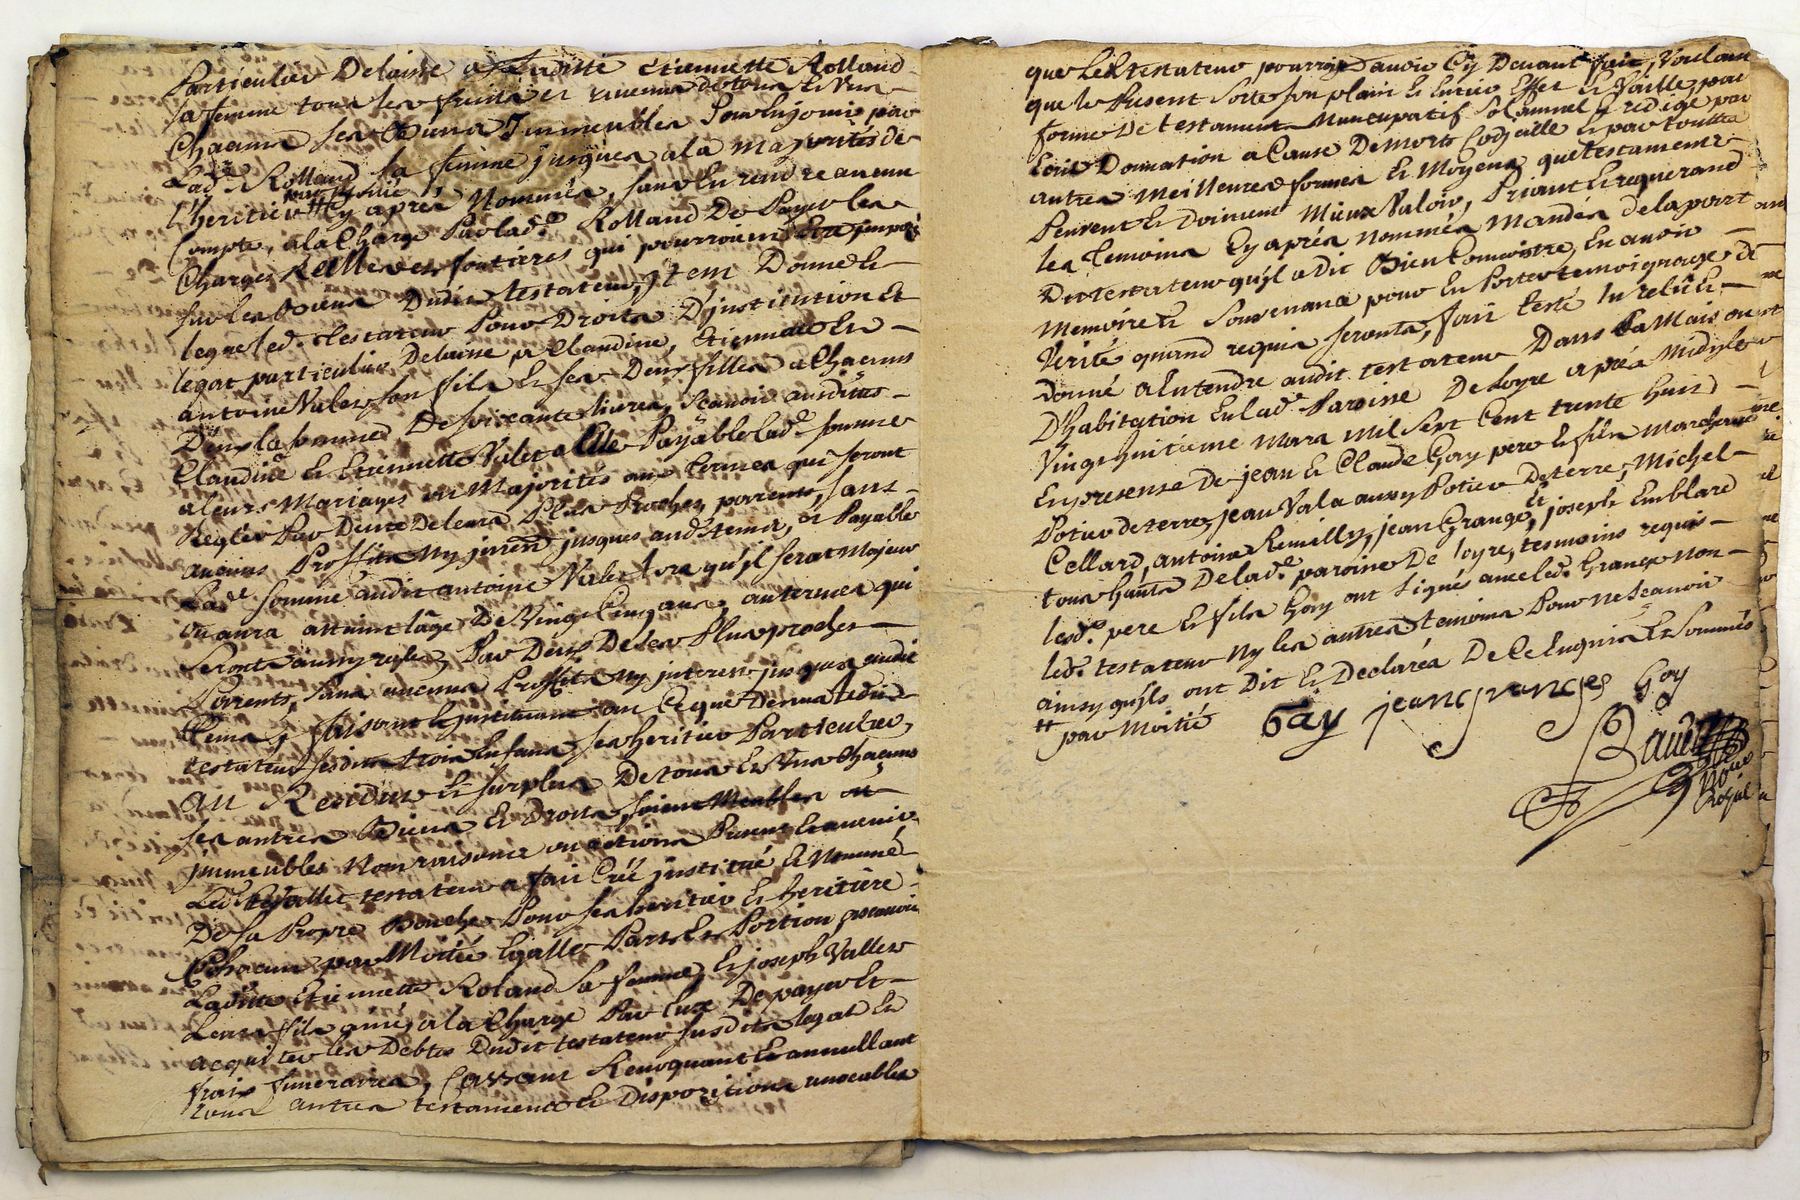 Particulier Delaisse a Laditte Etiennette Rolland
sa femme tous les fruits et revenus de tous Et Uns
Chacuns ses Biens Immeubles Pour En jouir par
Lad.e Rolland sa femme jusques a la majorités de
L'heritier tt Cy aprés Nommés, sans En rendre aucun
Compte, a la Charge Par lad.e Rolland De Payer les
Charges Réelles et fontieres qui pourroient Etre jmposé
sur les Biens Dudit testateur, jtem Donne Et
legue led. testateur Pour Droits D'jnstitution Et
legat particulier Delaissé a Claudine, Etiennette Et
antoine Valet son fils Et ses Deux filles a Chacuns
D'eux la somme De soixante livres, scavoir ausdittes
Claudine Et Etiennette Valet Payable lad.e somme
a leurs Mariages ou Majorités aux termes qui seront
Reglés Par Deux De leurs Plus Proches parrents, sans
aucuns Proffits Ny jnterest jusques aud. tems, et Payable
Lad.e somme audit antoine Valet lors qu'jl serat Majeur
ou aura atteint l'âge De Vingt Cinq ans, au termes qui
seront aussy reglés Par Deux De ses Plus proches
Parrents, sans aucuns Proffits Ny jnterest jusques audit
tems, faisant Et jnstituant au Ce que Dessus ledit
testateur sesdits trois Enfans ses heritier Particulier,
au Residus Et surplus De tous Et Uns Chacuns
ses autres Biens Et Droits, soient Meubles ou
jmmeubles Nom raisons ou actions Present Et avenir
Led. Vallet testateur a fait Créé jnstitué Et Nommé
De sa Propre Bouche Pour ses heritier Et heritiére
Chacun par Moitié Egalle Part Et Portion, scavoir
Laditte Etiennette Roland sa femme, Et joseph Vallet
Leurs fils ainé, a la Charge Par Eux De payer Et
acquiter les Debtes Dudit testateur susdits legat Et
frais funeraires, Cassant Revoquant Et annullant
tous autres testaments Et Dispozitions
que led testateur pourroit avoir Cy Devant fait, Voulant
que le Present sorte son plain Et Entier Effet Et Vaille par
forme De testament Nuncupatif solannel redigé par
Ecrit Donnation a Cause De morts Codjcille Et par touttes
autres meilleures formes Et Moyens que testament
Peuvent Et Doivent Mieux Valoir, Priant Et requerand
les temoins Cy aprés nommés Mandés de la part
Du testateur qu'jl a dit Bien Connoistre, En avoir
memoire Et souvenance pour En Porter temoignage De
Verité quand requis seronts, fait testé lu relû Et
donné a Entendre audit testateur Dans sa Maison
D'habitation En lad.e Paroisse De Loyre aprés Midy le
Vingt huitieme Mars Mil sept Cent trente huit
En presense De jean Et Claude Gay pere Et fils Marchand
Potier de terre, jean Vala aussy Potier De terre, Michel
Cellard, antoine Remilly, jean Grange, Et joseph Emblard
tous hants De lad.e paroisse De loyre, tesmoins requis
lesd. pere Et fils Gay ont signés avec led. Grange Non
led. testateur Ny les autres temoins Pour Ne scavoir
ainsy qu'jls ont Dit Et Declarés De Ce Enquis Et Sommés
tt par Moitié
Gay jean granges Gay
Noire
Royal